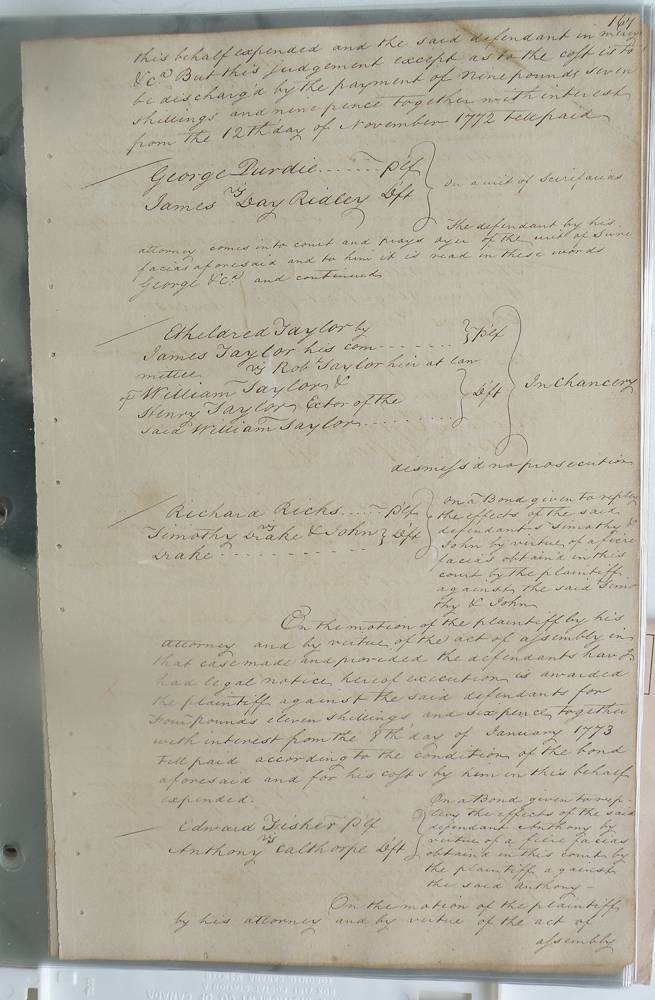 167
this behalf expended and the said defendant in mercy
&c.ª But this judgement except as to the cost is to
be discharg'd by the payment of Nine pounds seven
shillings and nine pence together with interest
from the 12th day of November 1772 till paid
George Purdie ........ Plf
vs
James Day Ridley Deft
On a writ of Scirefacias
The defendant by his
attorney comes into court and prays oyer of the writ of Scire
facias aforesaid and to him it is read in these words
George &c.ª and continued
Etheldred Taylor by
James Taylor his com ....... Plf
mittee vs Rob.t Taylor heir at law
of William Taylor &
Henry Taylor Ex.tor of the Deft
said William Taylor ..........
In Chancery
dismiss'd no prosecution
Richard Ricks ...... Plf
vs
Timothy Drake & John Deft
Drake - - - - - - - - - -
On a Bond given to replevy
the effects of the said
defendants Timothy &
John by virtue of a fiere
facias obtain'd in this
court by the plaintiff
against the said Timo
thy & John
On the motion of the plaintiff by his
attorney and by virtue of the act of assembly in
that case made and provided the defendants hav.g
had legal notice hereof execution is awarded
the plaintiff against the said defendants for
Four pounds eleven shillings and six pence together
with interest from the 8th day of January 1773
till paid according to the condition of the bond
aforesaid and for his costs by him in this behalf
expended.
Edward Fisher Plf
vs
Anthony Calthorpe Deft
On a Bond given to rep-
levy the effects of the said
defendant Anthony by
virtue of a fiere facias
obtain'd in this court by
the plaintiff against
the said Anthony -
On the motion of the plaintiff
by his attorney and by virtue of the act of
assembly